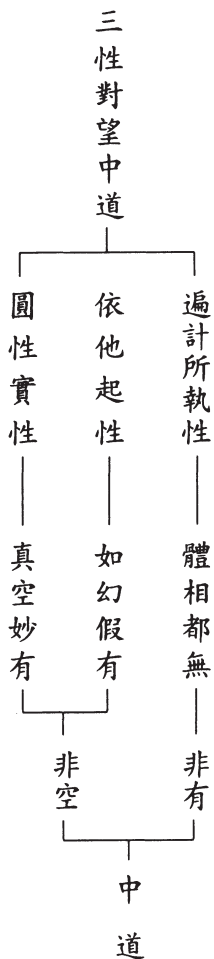 三性對望中道
遍計所執性
體相都無
非有
依他起性
如幻假有
圓性實性
真空妙有
非空
中道